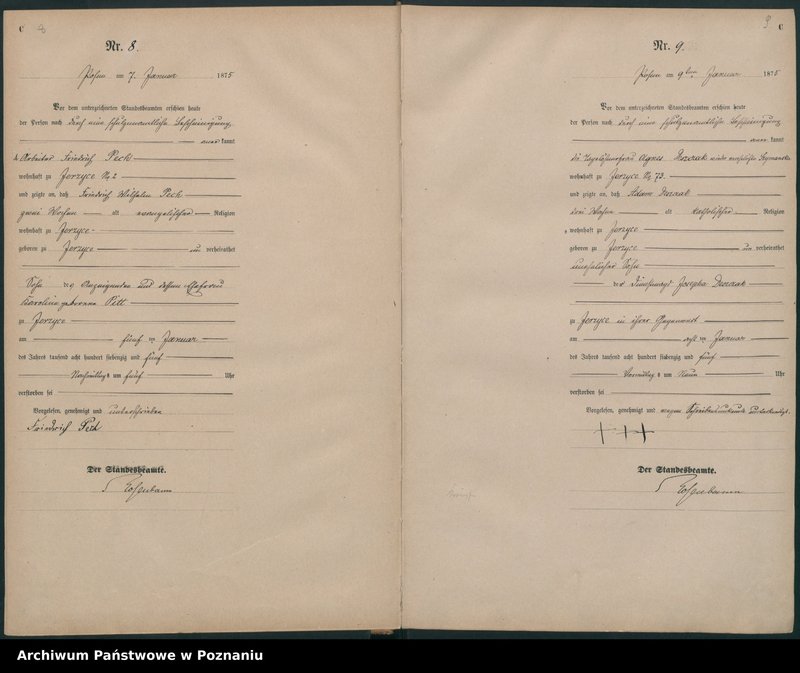 C 8
Nr. 8.
Posen am 7. Januar 1875
Vor dem unterzeichneten Standesbeamten erschien heute
der Person nach durch eine schulzenamtliche Bescheinigung
anerkannt
der Arbeiter Friedrich Peck
wohnhaft zu Jerzyce No 2
und zeigte an, daß Friedrich Wilhelm Peck
zwei Wochen alt evangelischer Religion
wohnhaft zu Jerzyce
geboren zu Jerzyce unverheirathet
Sohn des Anzeigenden und dessen Ehefrau
Karoline geborene Kett
zu Jerzyce
am fünf ten Januar
des Jahres tausend acht hundert siebenzig und fünf
Nachmittags um fünf Uhr
verstorben sei
Vorgelesen, genehmigt und unterschrieben
Friedrich Peck
Der Standesbeamte.
9 C
Nr. 9.
Posen am 9ten Januar 1875
Vor dem unterzeichneten Standesbeamten erschien heute
der Person nach durch eine schulzenamtliche Bescheinigung
anerkannt
die Tagelöhnerfrau Agnes
wohnhaft zu Jerzyce No 73.
und zeigte an, daß Adam
drei Wochen alt katholischer Religion
wohnhaft zu Jerzyce
geboren zu Jerzyce unverheirathet
unehelicher Sohn
der Dienstmagd Josepha
zu Jerzyce in ihrer Gegenwart
am acht ten Januar
des Jahres tausend acht hundert siebenzig und fünf
Vormittags um Neun Uhr
verstorben sei
Vorgelesen, genehmigt und wegen Schreibensunkunde unterkreuzt.
+++
Der Standesbeamte.
Archiwum Państwowe w Poznaniu